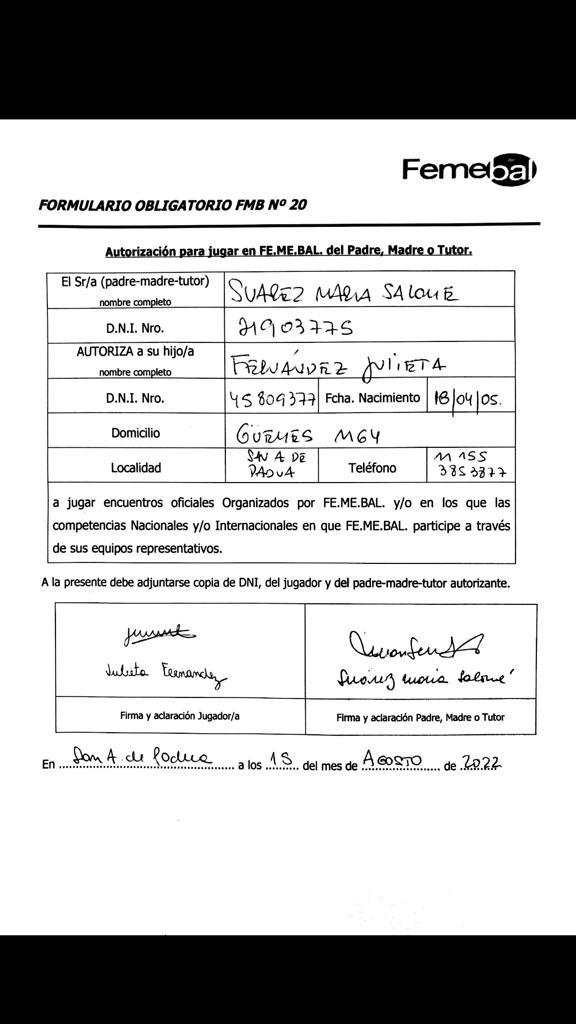 Femebal
FORMULARIO OBLIGATORIO FMB Nº 20
Autorización para jugar en FE.ME.BAL. del Padre, Madre o Tutor.
El Sr/a (padre-madre-tutor) nombre completo SUAREZ MARIA SALOMÉ
D.N.I. Nro. 21903775
AUTORIZA a su hijo/a nombre completo FERNÁNDEZ JULIETA
D.N.I. Nro. 45809377 Fcha. Nacimiento 18/04/05.
Domicilio GÜEMES 1164
Localidad SAN A DE PADUA Teléfono 11 155 3853877
a jugar encuentros oficiales Organizados por FE.ME.BAL. y/o en los que las
competencias Nacionales y/o Internacionales en que FE.ME.BAL. participe a través
de sus equipos representativos.
A la presente debe adjuntarse copia de DNI, del jugador y del padre-madre-tutor autorizante.
Julieta Fernandez
Suárez maria Salomé
Firma y aclaración Jugador/a
Firma y aclaración Padre, Madre o Tutor
En San A. de Padua a los 15 del mes de AGOSTO de 2022